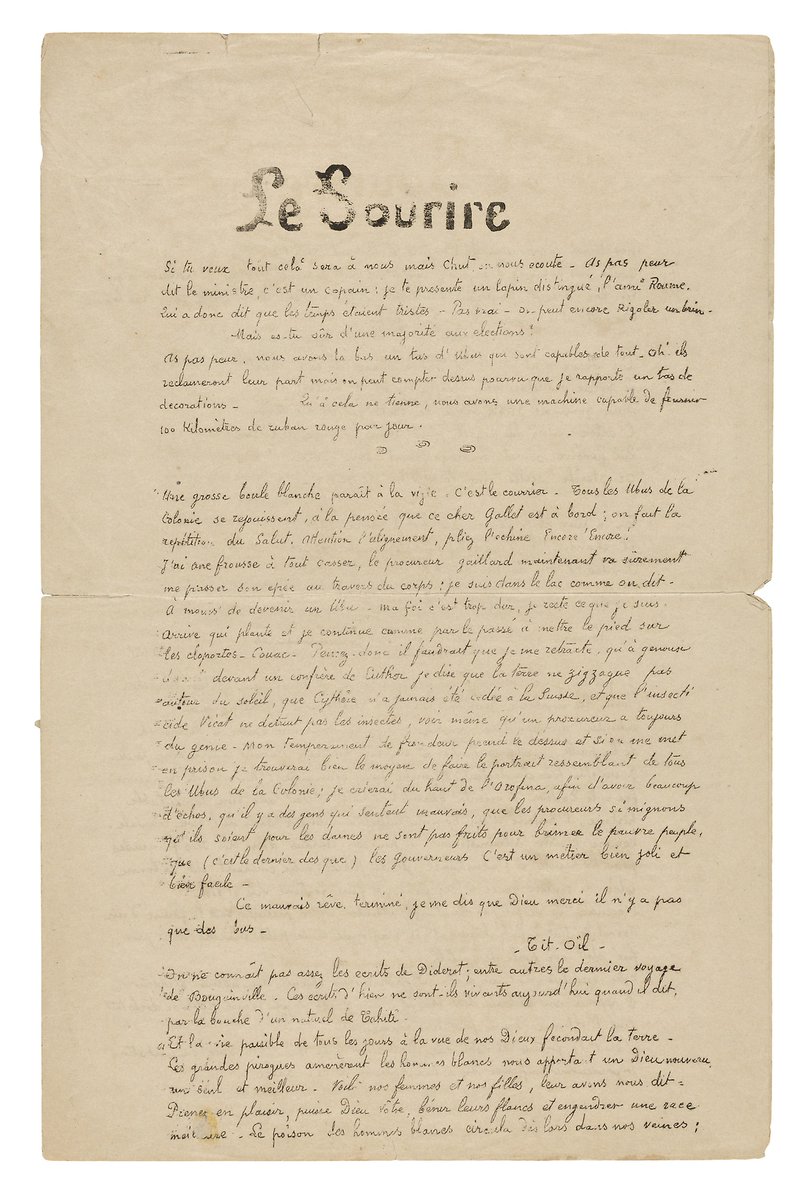 Le Sourire
Si tu veux tout cela sera à nous mais Chut on nous ecoute - As pas peur
dit le ministre, c'est un copain: je te presente un lapin distingué, l'ami Roume.
Lui a donc dit que les temps étaient tristes - Pas vrai - on peut encore Rigoler un brin -
Mais es-tu sûr d'une majorité aux elections!
As pas peur. nous avons là bas un tas d'Ubus qui sont capables de tout - Oh! ils
reclameront leur part mais on peut compter dessus pourvu que je rapporte un tas de
decorations - Qu'à cela ne tienne, nous avons une machine capable de
100 Kilomètres de ruban rouge par jour.
Une grosse boule blanche paraît à la vigie. C'est le courrier - Tous les Ubus de la
Colonie se rejouissent, à la pensée que ce cher Gallet est à bord; on fait la
répétition du Salut. Attention l'alignement, pliez l'echine Encore! Encore!
J'ai une frousse à tout casser, le procureur gaillard maintenant va sûrement
me passer son epée au travers du corps: je suis dans le lac comme on dit -
À moins de devenir un Ubu - ma foi c'est trop dur, je reste ce que je suis.
Arrive qui plante et je continue comme par le passé à mettre le pied sur
les cloportes - Couac - Pensez donc il faudrait que je me retracte, qu'à genoux
devant un confrère de Luthor je dise que la terre ne zigzague pas
autour du soleil, que Cythère n'a jamais été cedée à la Suisse, et que l'insecti
cide Vicat ne detruit pas les insectes, voir même qu'un procureur a toujours
du genie - Mon temperament de frondeur prend le dessus et si on me met
en prison je trouverai bien le moyen de faire le portrait ressemblant de tous
les Ubus de la Colonie; je crierai du haut de l'Orofena, afin d'avoir beaucoup
d'échos, qu'il y a des gens qui sentent mauvais, que les procureurs si mignons
qu'ils soient pour les dames ne sont pas faits pour brimer le pauvre peuple,
que (c'est le dernier des que) les Gouverneurs C'est un métier bien joli et
bien facile -
Ce mauvais rêve terminé, je me dis que Dieu merci il n'y a pas
que des bus -
- Tit-Oïl -
On ne connaît pas assez les ecrits de Diderot; entre autres le dernier voyage
de Bougainville. Ces écrits d'hier ne sont-ils vivants aujourd'hui quand il dit,
par la bouche d'un naturel de Tahiti -
Et la vie paisible de tous les jours à la vue de nos Dieux fecondait la terre -
Les grandes pirogues amenèrent les hommes blancs nous apportant un Dieu nouveau,
un seul et meilleur - Voilà nos femmes et nos filles, leur avons nous dit -
Prenez en plaisir, puisse Dieu vôtre, benir leurs flancs et engendrer une race
meilleure - Le poison des hommes blancs circula dès lors dans nos veines;